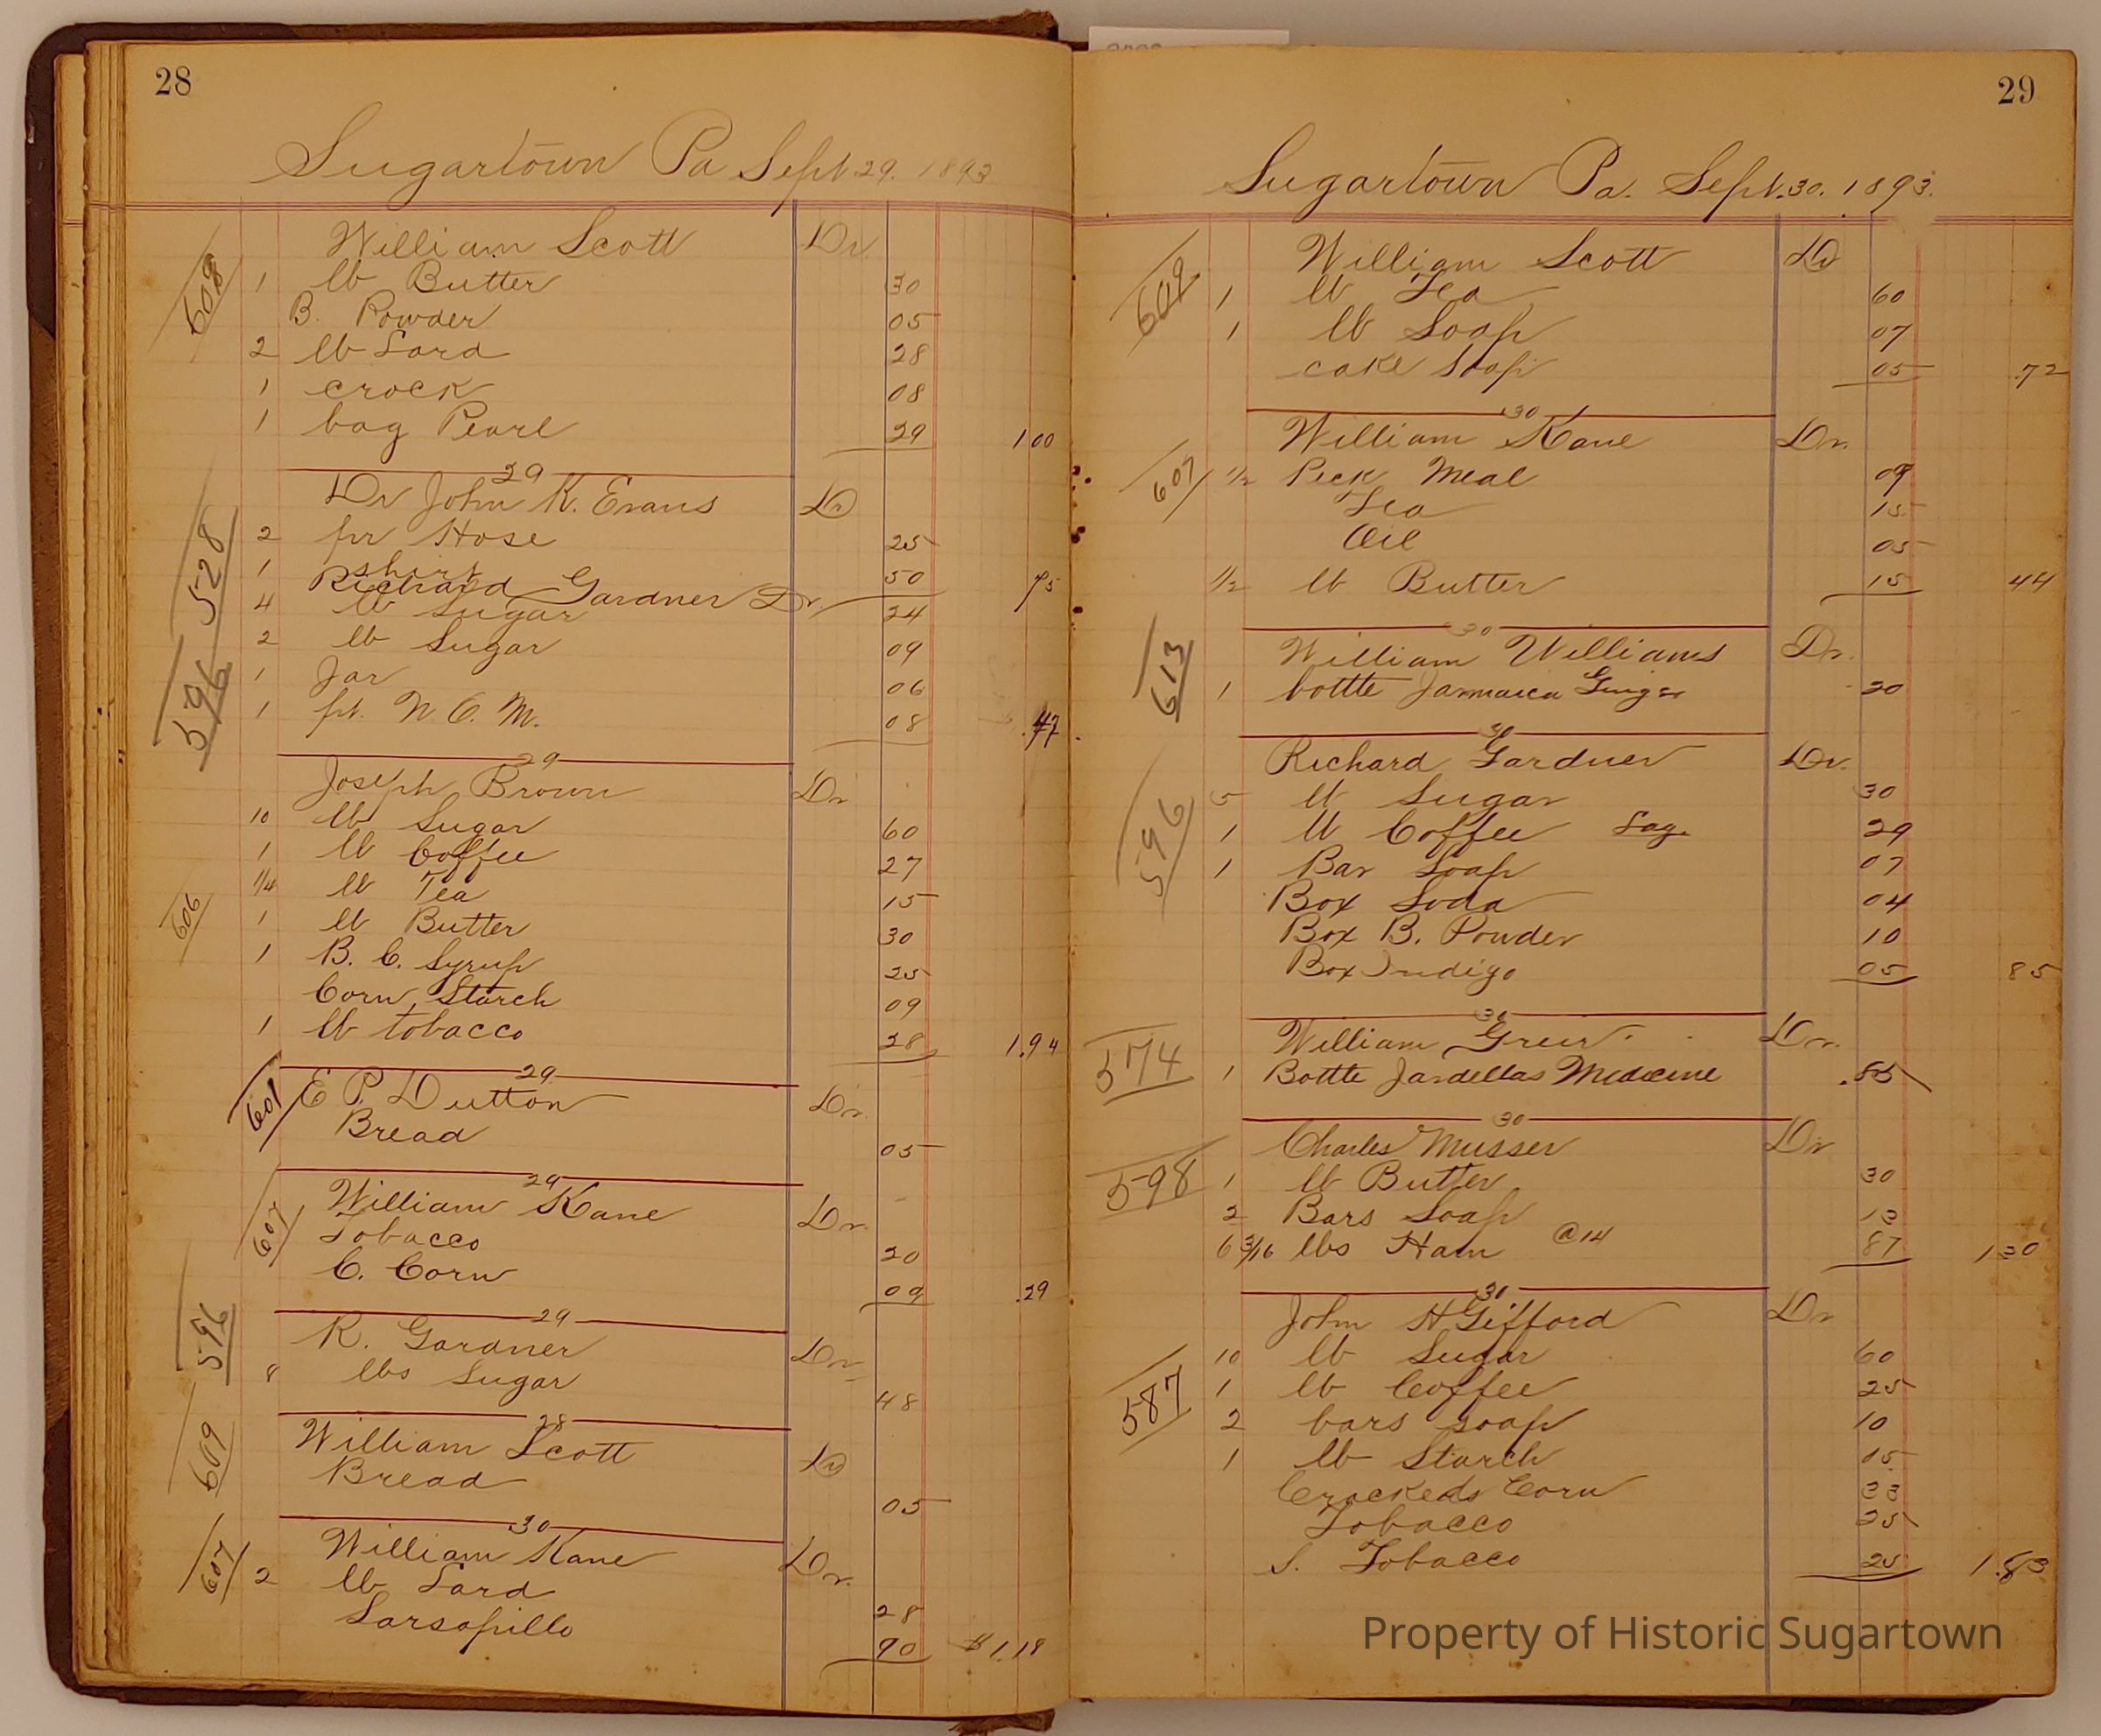 28
Sugartown Pa Sept 29. 1893
608
William Scott Dr
1 lb Butter 30
B. Powder 05
2 lb Lard 28
1 crock 08
1 bag Pearl 29 1 00
29
528
Dr John K. Evans Dr
2 pr Hose 25
1 shirt 50 75
596
Richard Gardner Dr.
4 lb Sugar 24
2 lb Sugar 09
1 Jar 06
1 pt. N. O. M. 08 .47
29
606
Joseph Brown Dr
10 lbs Sugar 60
1 lb Coffee 27
1/4 lb Tea 15
1 lb Butter 30
1 B. C. Syrup 25
Corn Starch 09
1 lb tobacco 28 1.94
29
601
E P. Dutton Dr.
Bread 05
29
607
William Kane Dr.
Tobacco 20
C. Corn 09 .29
29
596
R. Gardner Dr
8 lbs Sugar 48
28
609
William Scott Dr
Bread 05
30
607
William Kane Dr.
2 lb Lard 28
Sarsapilla 90 $1.18
29
Sugartown Pa. Sept. 30. 1893.
609
William Scott Dr
1 lb Tea 60
1 lb Soap 07
cake Soap 05 .72
30
607
William Kane Dr.
1/2 Peck Meal 09
Tea 15
Oil 05
1/2 lb Butter 15 44
30
613
William Williams Dr.
1 bottle Jamaica Ginger 20
30
596
Richard Gardner Dr.
5 lb Sugar 30
1 lb Coffee Lag. 29
1 Bar Soap 07
Box Soda 04
Box B. Powder 10
Box Indigo 05 85
30
574
William Greer Dr.
1 Bottle Jardellas Medecine .85
30
598
Charles Musser Dr
1 lb Butter 30
2 Bars Soap 13
6 3/16 lbs Ham @ 14 87 1 30
30
587
John H Gifford Dr
10 lb Sugar 60
1 lb Coffee 25
2 bars soap 10
1 lb Starch 15
Crackeds Corn 33
Tobacco 25
S. Tobacco 25 1.83
Property of Historic Sugartown